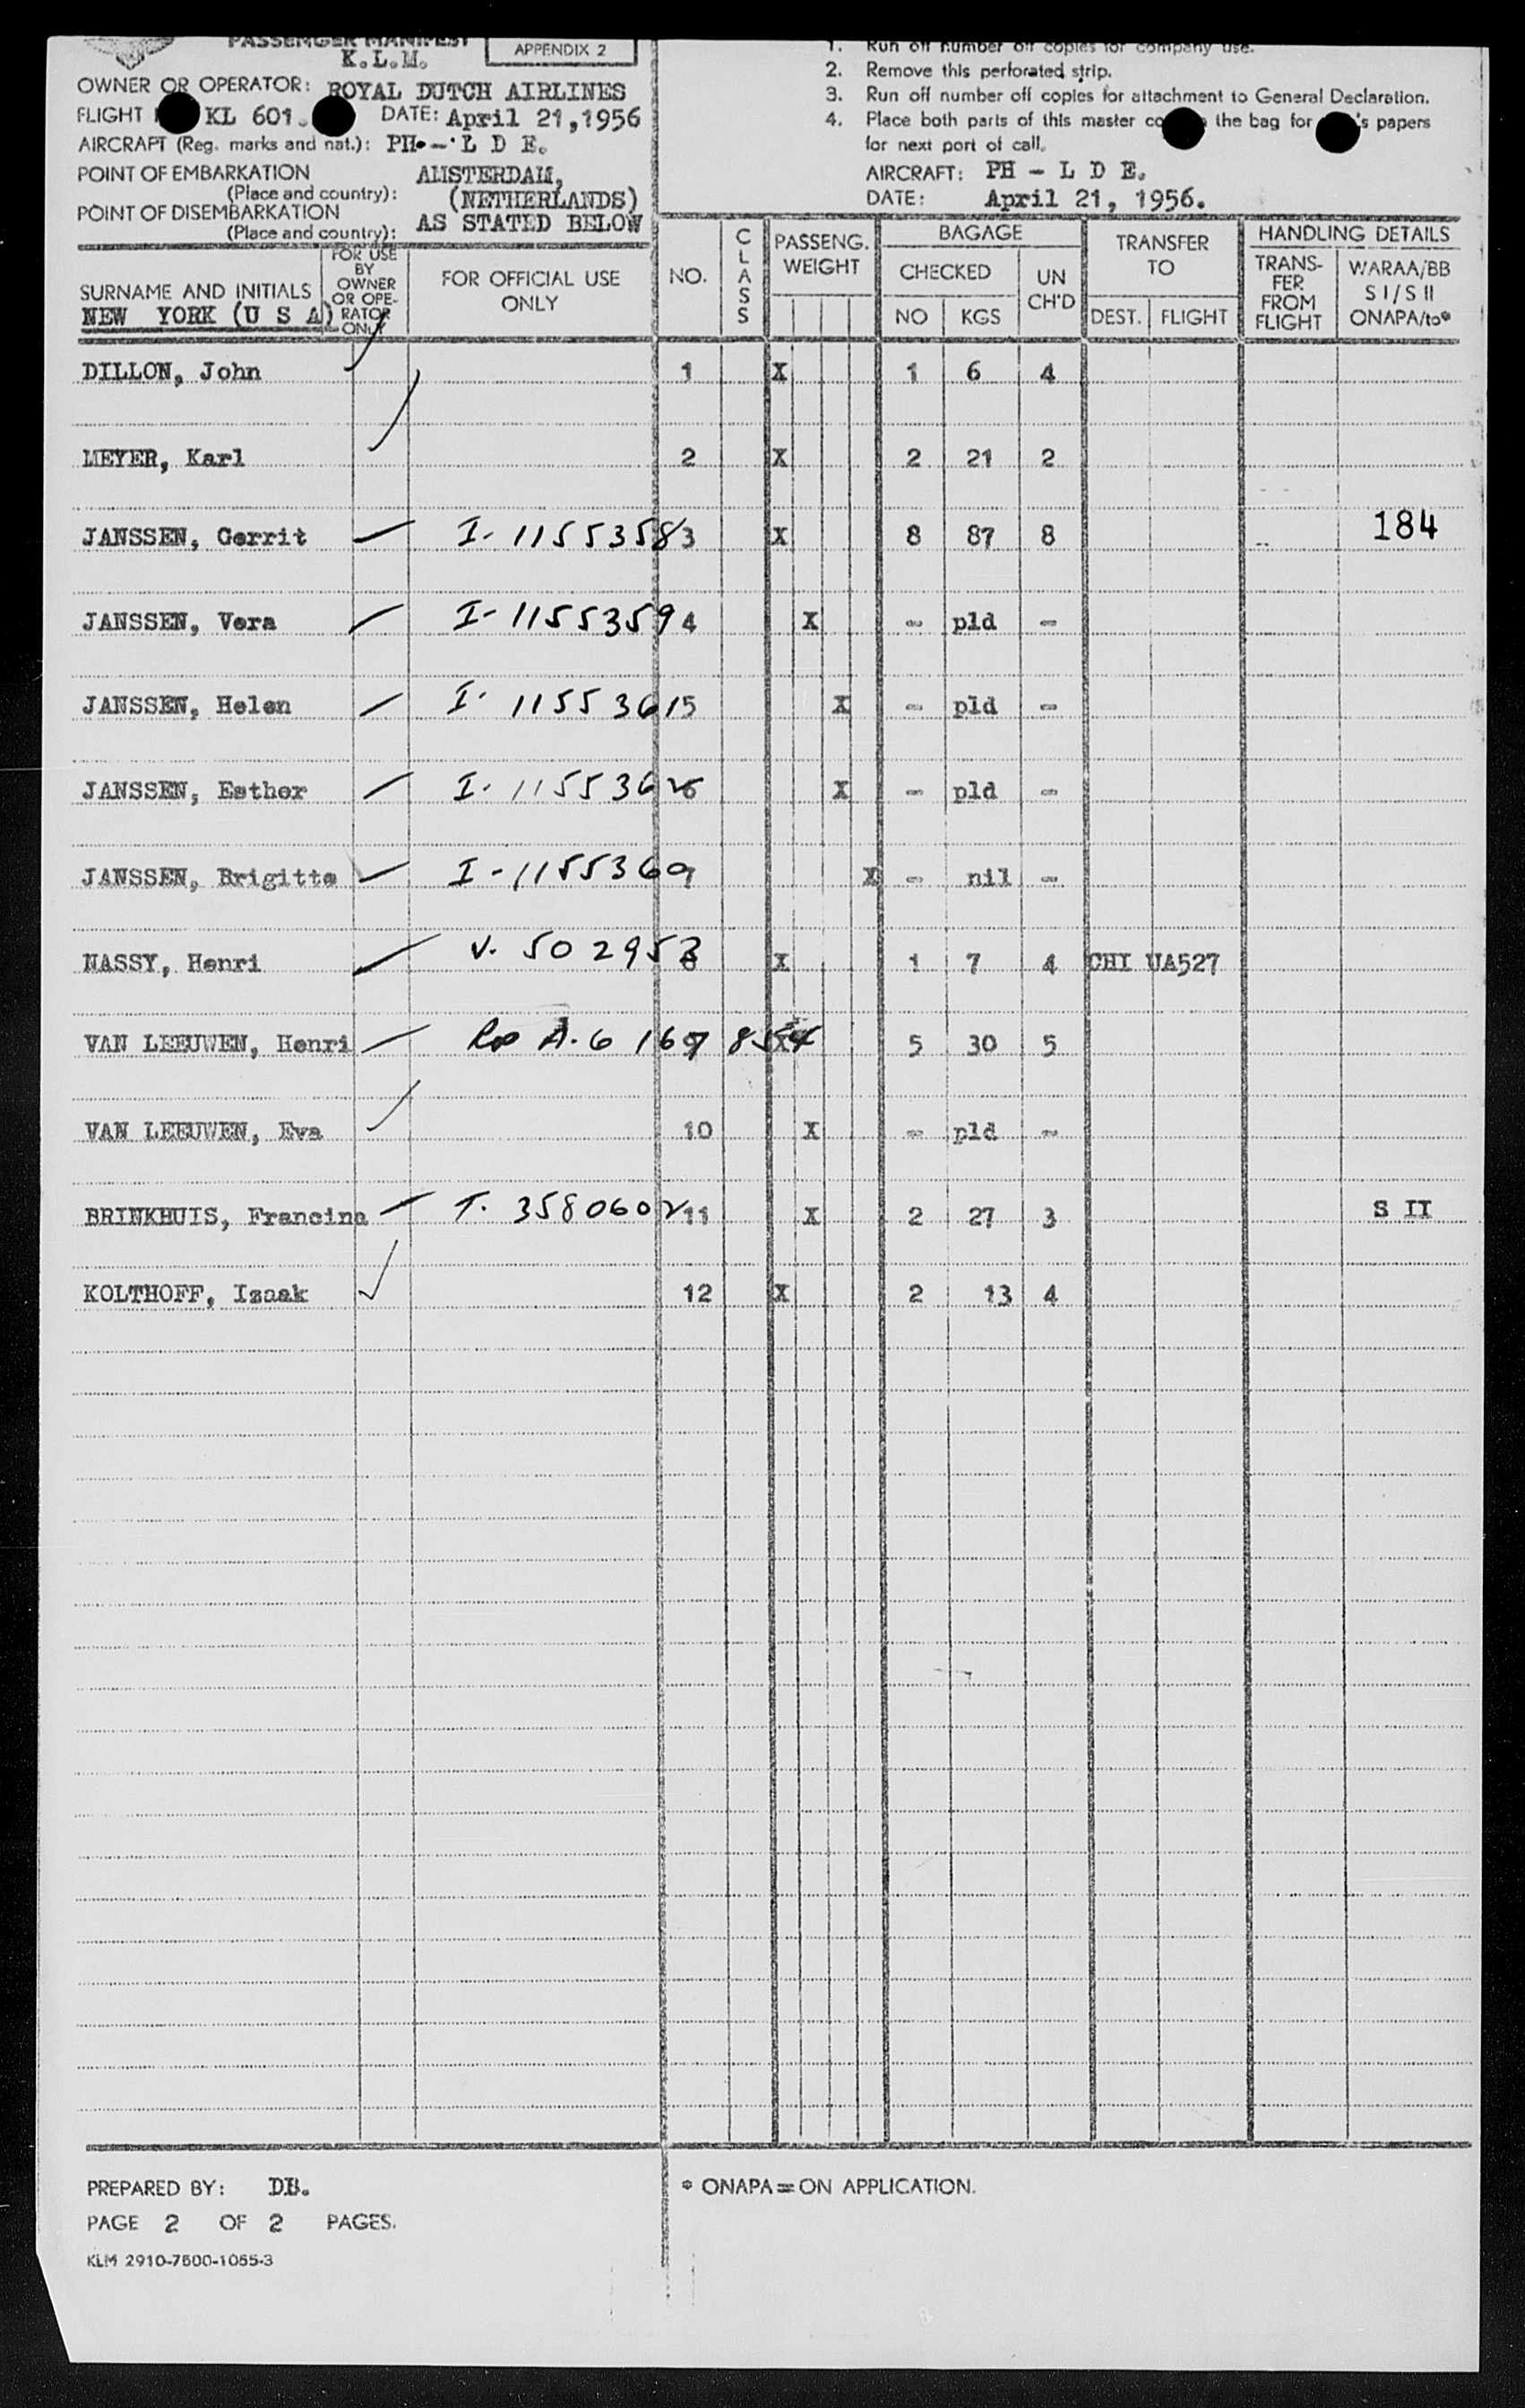 PASSENGER MANIFEST
APPENDIX 2
K.L.M.
OWNER OR OPERATOR: ROYAL DUTCH AIRLINES
FLIGHT KL 601. DATE: April 21,1956
AIRCRAFT (Reg. marks and nat.): PH.-L D E.
POINT OF EMBARKATION AMSTERDAM,
(Place and country): (NETHERLANDS)
POINT OF DISEMBARKATION AS STATED BELOW
(Place and country):
1. Run off number off copies for company use.
2. Remove this perforated strip.
3. Run off number off copies for attachment to General Declaration.
4. Place both parts of this master the bag for 's papers
for next port of call.
AIRCRAFT: PH - L D E.
DATE: April 21, 1956.
SURNAME AND INITIALS
NEW YORK (U S A)
FOR USE BY OWNER OR OPERATOR ONLY
FOR OFFICIAL USE ONLY
NO. CLASS PASSENG. WEIGHT
BAGAGE CHECKED NO KGS UN CH'D
TRANSFER TO DEST. FLIGHT
HANDLING DETAILS TRANSFER FROM FLIGHT WARAA/BB S I/S II ONAPA/to*
DILLON, John 1 X 1 6 4
MEYER, Karl 2 X 2 21 2
JANSSEN, Gerrit I-1155358 3 X 8 87 8 184
JANSSEN, Vera I-1155359 4 X - pld -
JANSSEN, Helen I-1155361 5 X - pld -
JANSSEN, Esther I-1155362 6 X - pld -
JANSSEN, Brigitte X - nil -
NASSY, Henri X 1 7 4 CHI UA527
VAN LEEUWEN, Henri X 5 30 5
VAN LEEUWEN, Eva 10 X - pld -
BRINKHUIS, Francina T. 3580602 11 X 2 27 3 S II
KOLTHOFF, Izaak 12 X 2 13 4
PREPARED BY: DB.
* ONAPA=ON APPLICATION.
PAGE 2 OF 2 PAGES.
KLM 2910-7500-1055-3